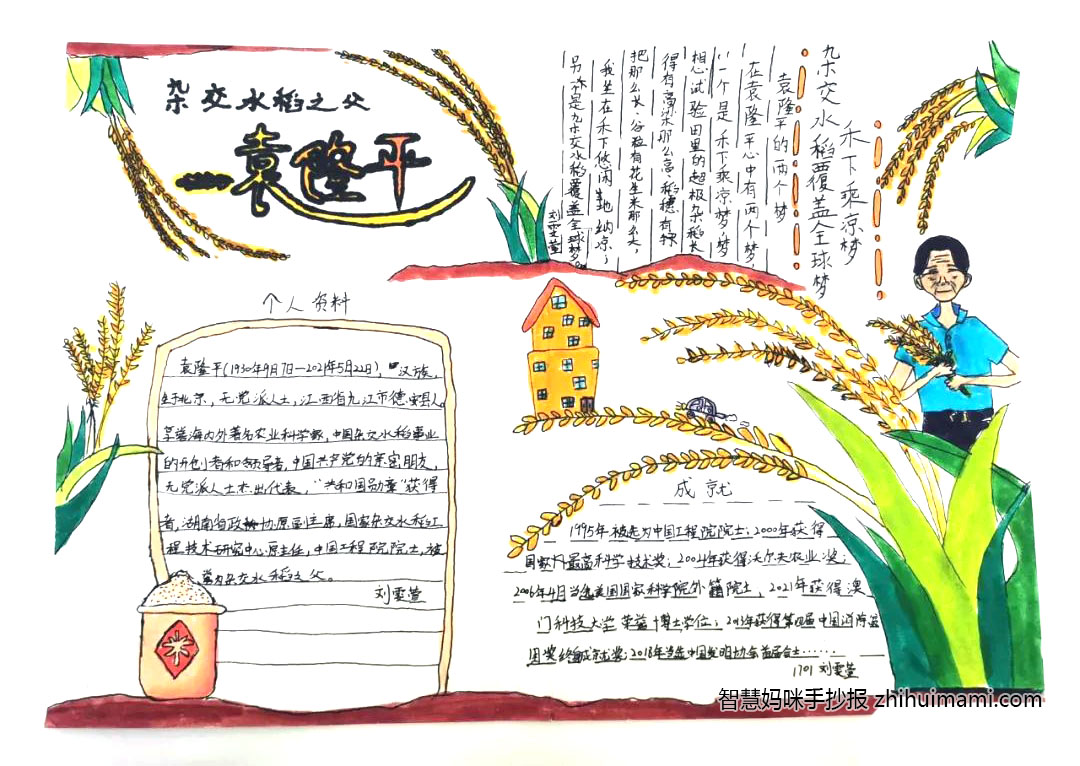 杂交水稻之父
袁隆平
杂交水稻覆盖全球梦
禾下乘凉梦
袁隆平的两个梦
在袁隆平心中有两个梦,
一个是禾下乘凉梦,梦
想试验田里的超级杂稻长
得有高粱那么高,稻穗有扫
把那么长,谷粒有花生米那么大,
我坐在禾下悠闲地纳凉;
另一个是杂交水稻覆盖全球梦。
刘雯萱
个人资料
袁隆平(1930年9月7日—2021年5月22日),汉族,
生于北京,无党派人士,江西省九江市德安县人。
享誉海内外著名农业科学家,中国杂交水稻事业
的开创者和领导者,中国共产党的亲密朋友,
无党派人士杰出代表,“共和国勋章”获得
者,湖南省政协原副主席,国家杂交水稻工
程技术研究中心原主任,中国工程院院士,被
誉为杂交水稻之父。
刘雯萱
米
成就
1995年被选为中国工程院院士;2000年获得
国家最高科学技术奖;2004年获得沃尔夫农业奖;
2006年4月当选美国国家科学院外籍院士,2021年获得澳
门科技大学荣誉博士学位;获得第四届中国消除贫
困奖终身成就奖;2018年当选中国发明协会首届会士……
1701 刘雯萱
智慧妈咪手抄报 zhihuimami.com